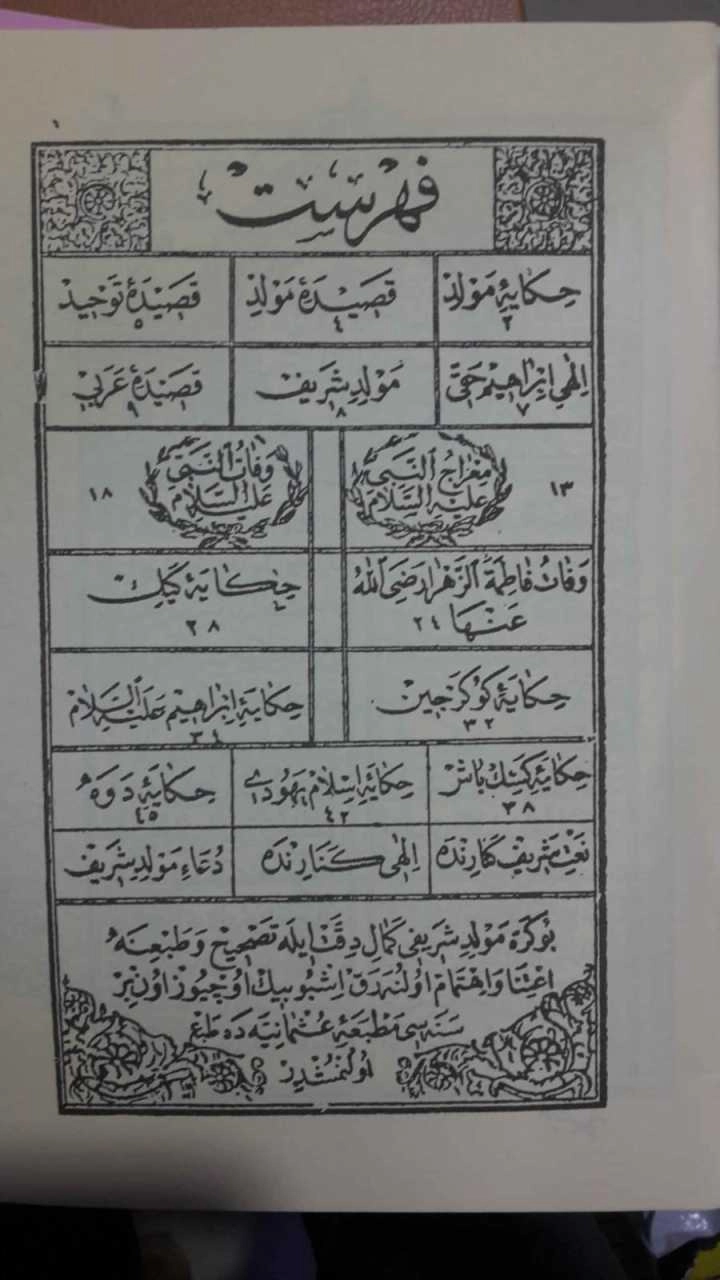 فهرست
حكايهٔ مولد
٢
قصيدهٔ مولد
٤
قصيدهٔ توحيد
٥
الهی ابراهيم حقی
٧
مولد شريف
٨
قصيدهٔ عربی
٩
معراج النبی
عليه السلام
١٣
وفات النبی
عليه السلام
١٨
وفات فاطمة الزهرا رضی الله
عنها ٢٤
حكايهٔ كيك
٢٨
حكايهٔ كوكرجين
٣٢
حكايهٔ ابراهيم عليه السلام
٣٤
حكايهٔ كسك باش
٣٨
حكايهٔ اسلام يهودی
٤٢
حكايهٔ دوه
٤٥
نعت شريف كنارنده
الهی كنارنده
دعاء مولد شريف
بو كره مولد شريفی كمال دقت ايله تصحيح و طبعنه
اعتنا و اهتمام اولنه رق اشبو بيك اوچيوز اون بر
سنه سی مطبعهٔ عثمانيه ده طبع
اولنمشدر